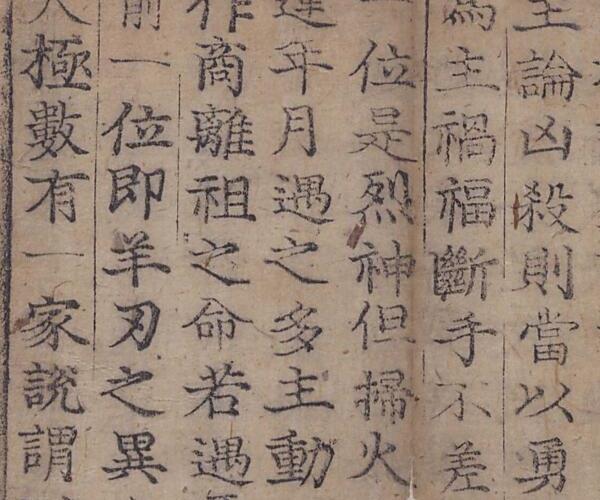 主論凶殺則當以勇
為主禍福斷手不差
一位是烈神但掃火
逢年月遇之多主動
作商離祖之命若遇
前一位即羊刃之異
極數有一家說謂